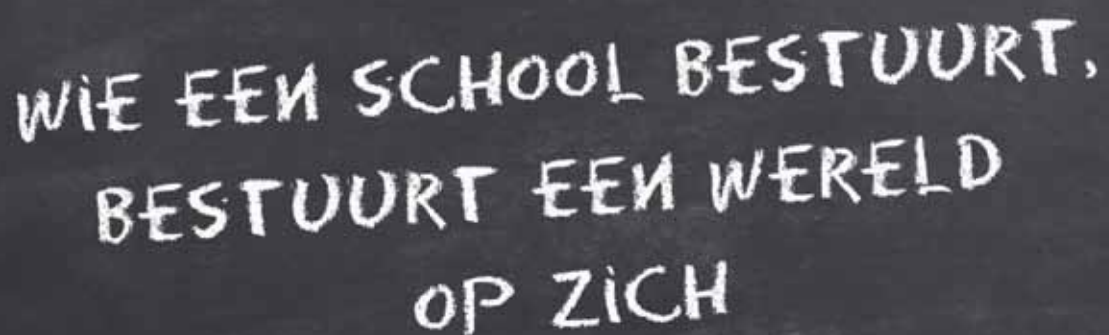 WIE EEN SCHOOL BESTUURT,
BESTUURT EEN WERELD
OP ZICH